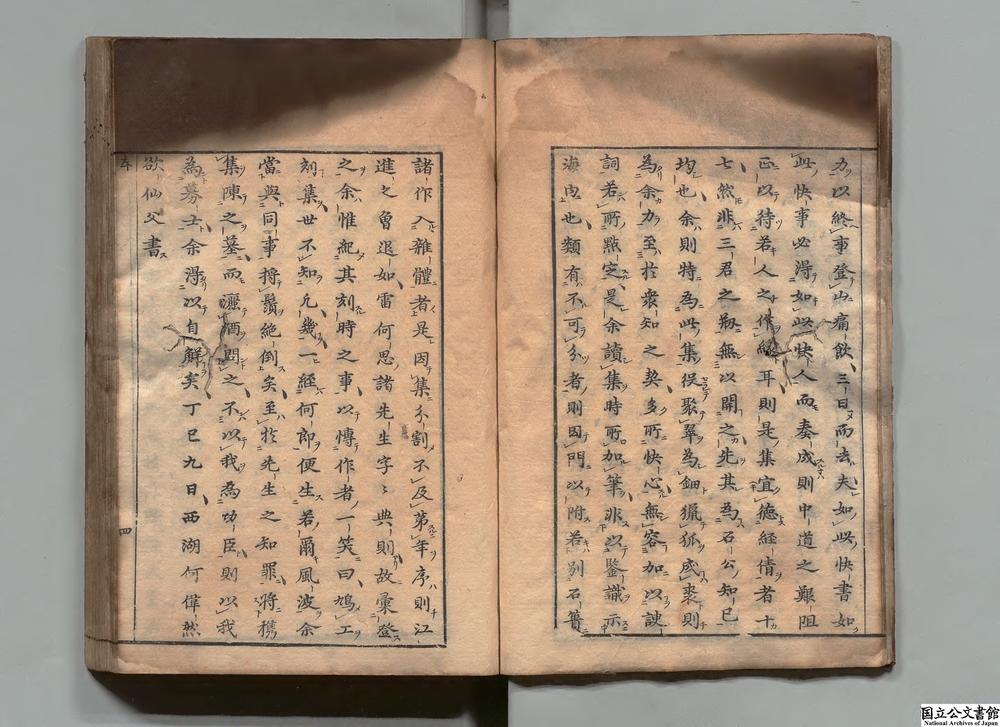 力以終事登山痛飲三日而去夫如此快書如
此快事必得如此快人而奏成則中道之艱阻
正以待若人之作緣耳則是集宜德經倩者十
七然非三君之剏無以開之先其為石公知已
均也余則特為此集役聚翠為鈿獵狐成裘則
為余力至於衆知之契多所快心無容加以諛
詞若所點定是余讀集時所加筆非以鑒識示
海内也類有不可分者則因門以附若別石簣
諸作入雜體者是因集分割不及第年序則江
進之曾退如雷何思諸先生字〻典則故彙登
之余惟紀其刻時之事以慱作者一笑曰鳩工
刻集世不知凡幾一經何郎便生若爾風波余
當與同事捋鬚絶倒矣至於先生之知罪將穫
集陳之墓而灑酒問之不以我為功臣則以我
為募士余得以自解矣丁巳九日西湖何偉然
欲仙父書
序
四
国立公文書館
National Archives of Japan